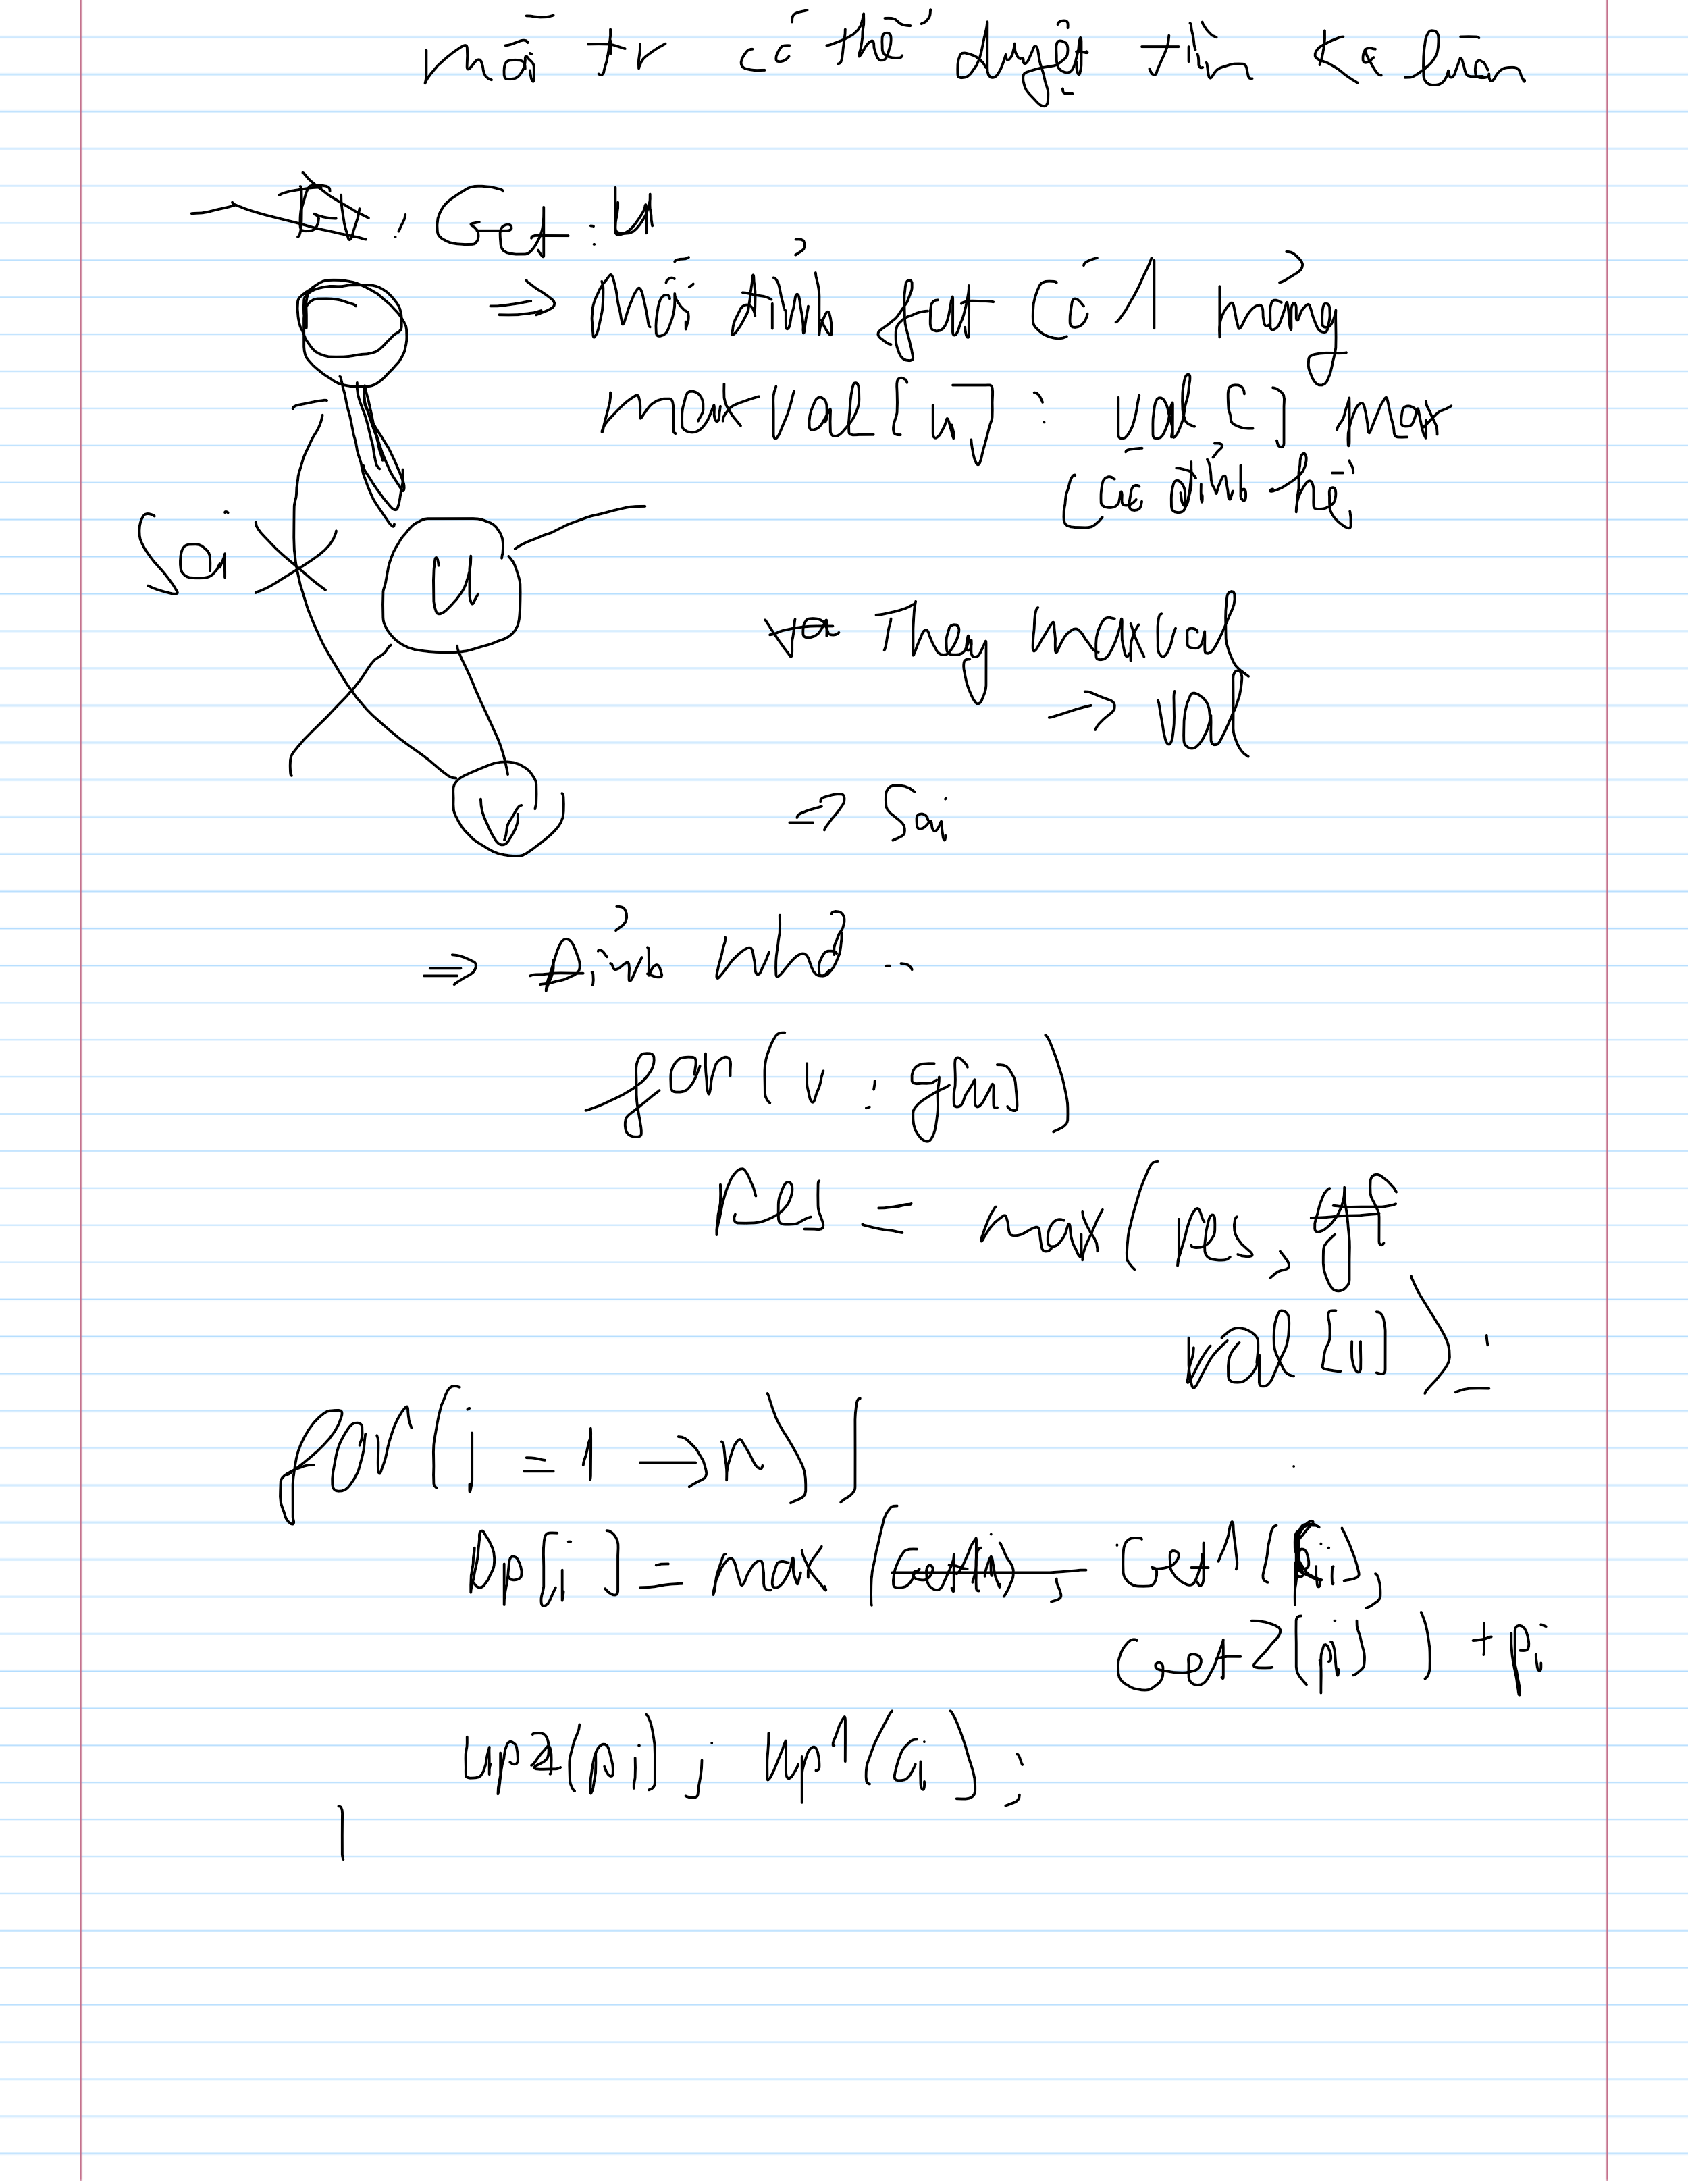 mỗi tr có thể duyệt tìm ka lần
: Get : u
⇒ Mỗi đỉnh fat có 1 mảng
maxval[u] : val[] max
các đỉnh hệ
Sai
u
They maxval
→ val
v
⇒ Sai
⇒ Đỉnh Nhỏ ..
for(v : g[u])
Res = max(res,
val[v]);
for(i = 1 → n){
Dp[i] = max( Get1(pi),
Get2(pi)) + pi
up2(pi) ; up1(ai);